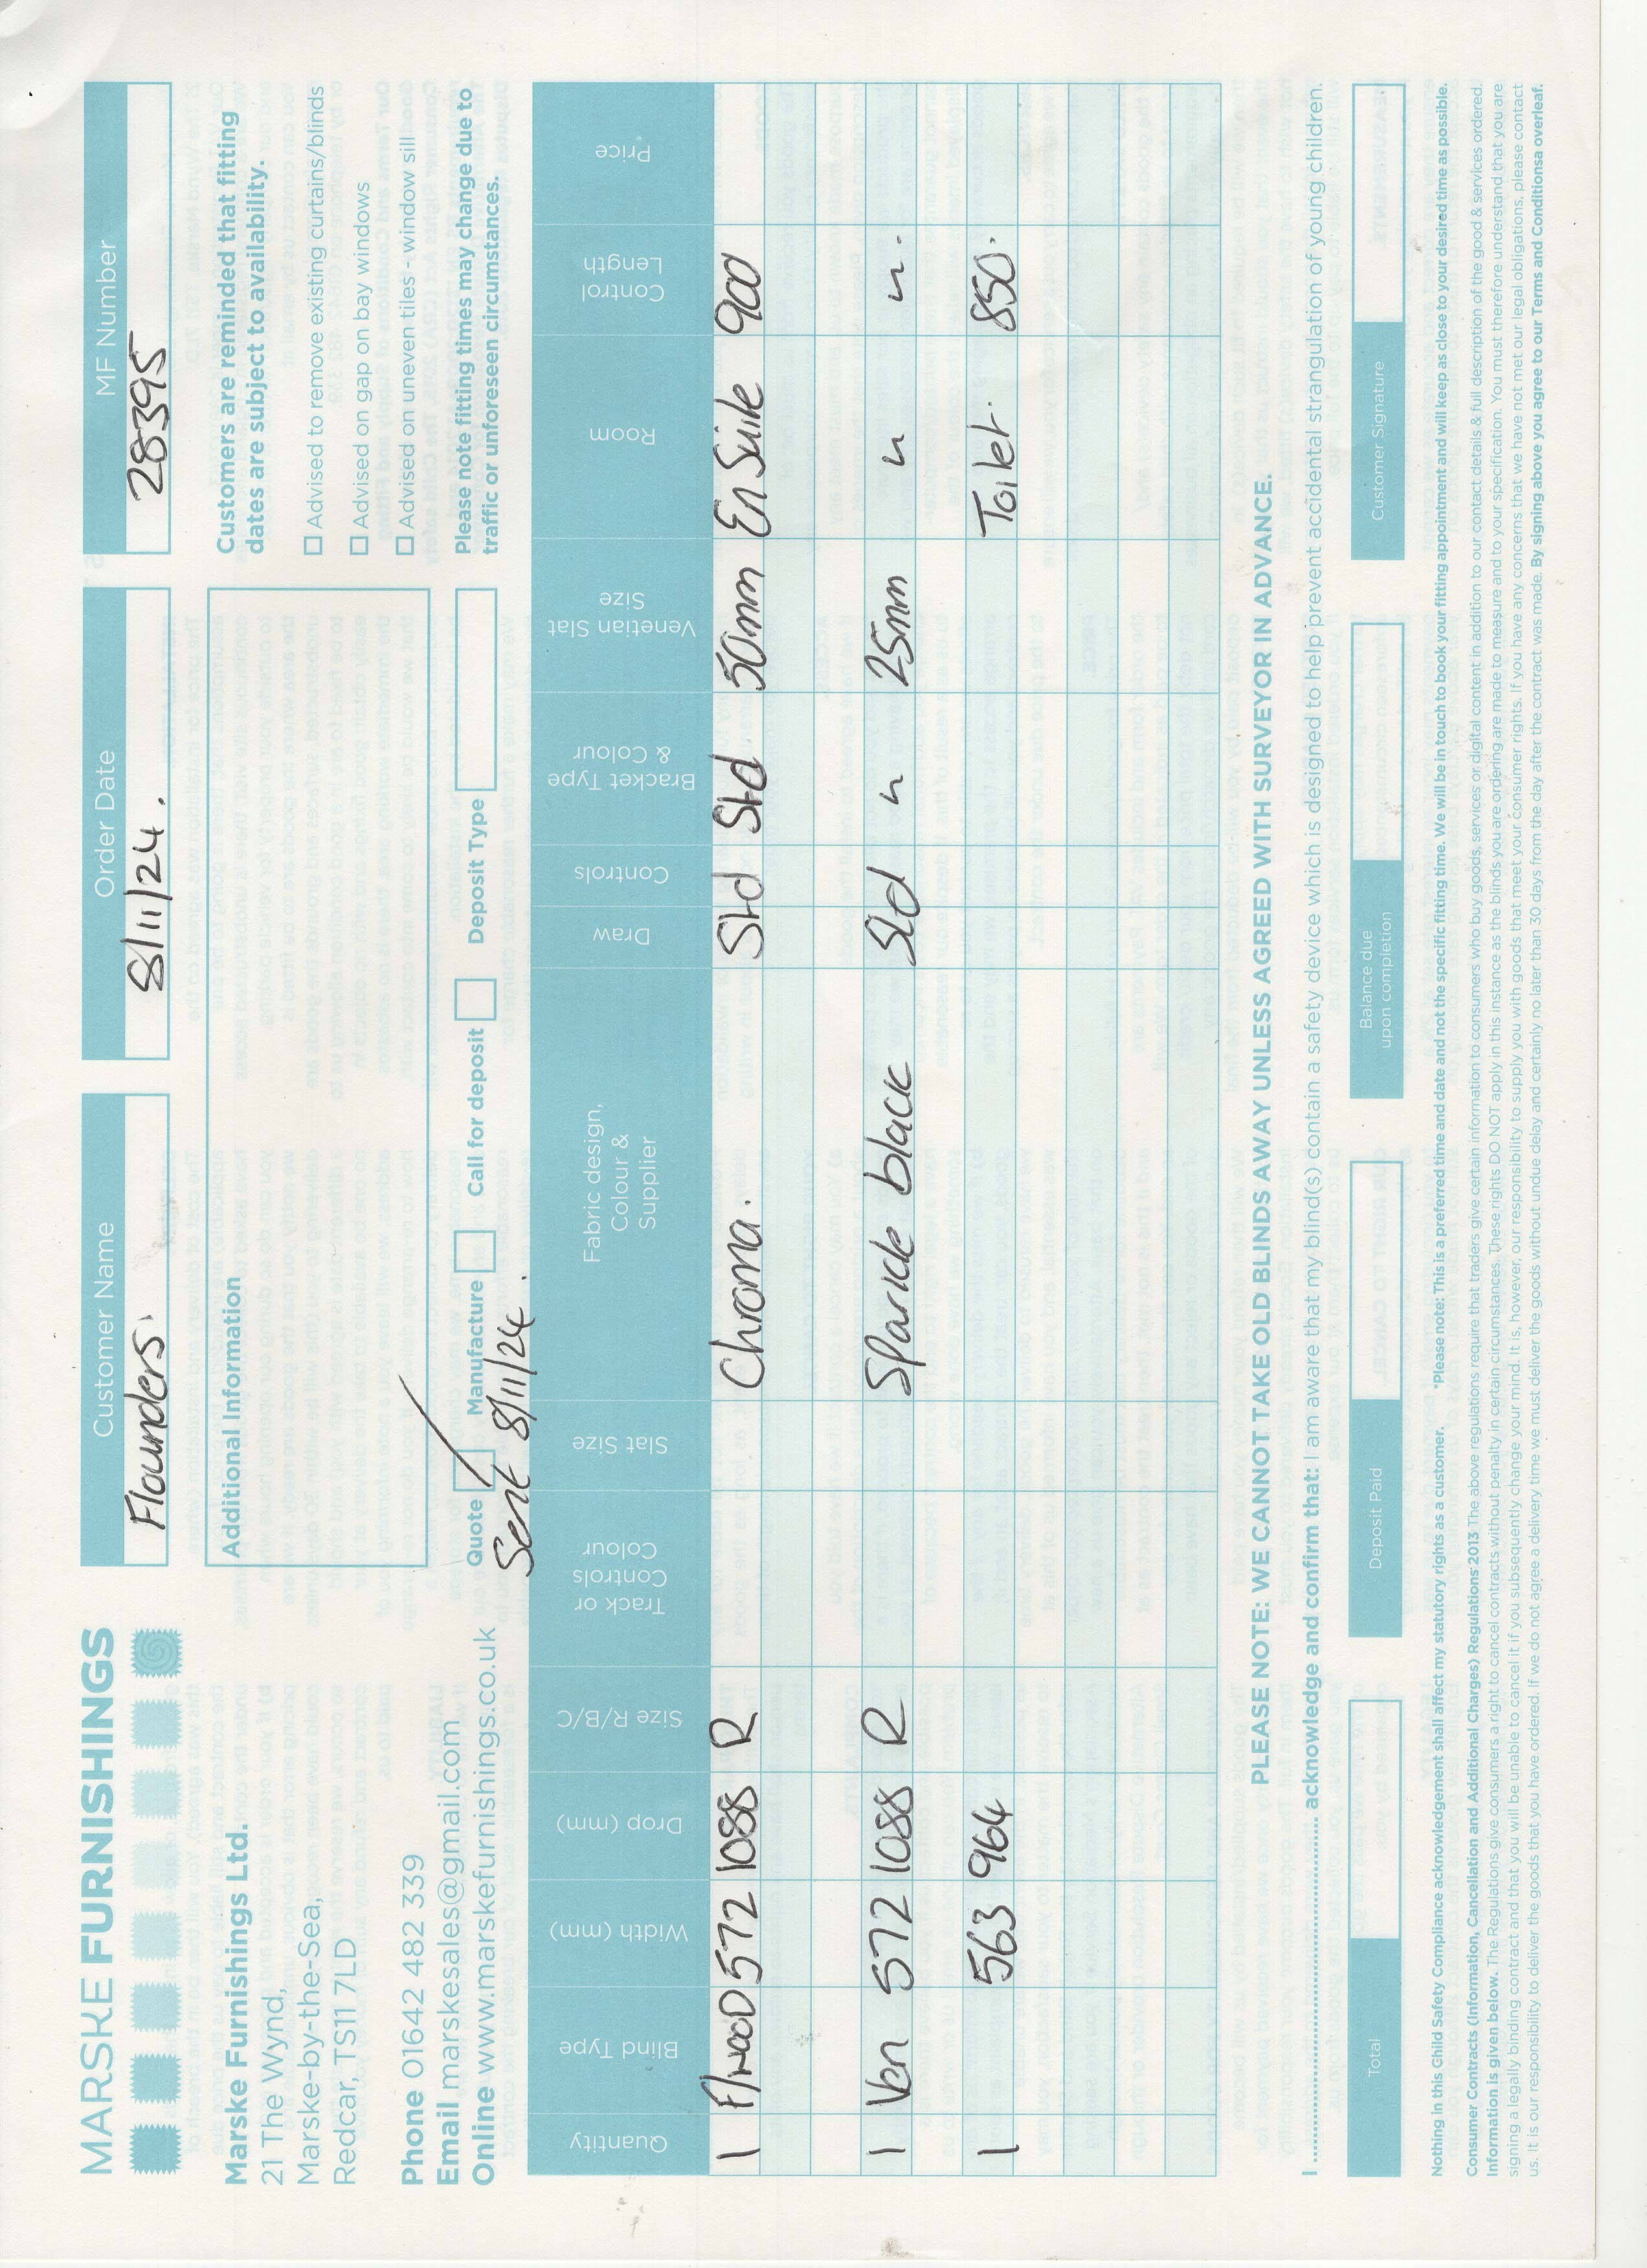 MARSKE FURNISHINGS
Marske Furnishings Ltd.
21 The Wynd,
Marske-by-the-Sea,
Redcar, TS11 7LD
Phone 01642 482 339
Email marskesales@gmail.com
Online www.marskefurnishings.co.uk
Customer Name
Flounders.
Order Date
8/11/24.
MF Number
28395
Additional Information
Customers are reminded that fitting
dates are subject to availability.
Advised to remove existing curtains/blinds
Advised on gap on bay windows
Advised on uneven tiles - window sill
Please note fitting times may change due to
traffic or unforeseen circumstances.
Quote Manufacture Call for deposit Deposit Type
Sent 8/11/24.
Quantity Blind Type Width (mm) Drop (mm) Size R/B/C Track or Controls Colour Slat Size Fabric design, Colour & Supplier Draw Controls Bracket Type & Colour Venetian Slat Size Room Control Length Price
1 F/WOOD 572 1088 R Chroma. Std Std 50mm En Suite 900
1 Ven 572 1088 R Sparkle black Std " 25mm " " .
1 563 964 Toilet. 850.
PLEASE NOTE: WE CANNOT TAKE OLD BLINDS AWAY UNLESS AGREED WITH SURVEYOR IN ADVANCE.
I ........................................ acknowledge and confirm that: I am aware that my blind(s) contain a safety device which is designed to help prevent accidental strangulation of young children.
Total Deposit Paid Balance due upon completion Customer Signature
Nothing in this Child Safety Compliance acknowledgement shall affect my statutory rights as a customer. *Please note: This is a preferred time and date and not the specific fitting time. We will be in touch to book your fitting appointment and will keep as close to your desired time as possible.
Consumer Contracts (Information, Cancellation and Additional Charges) Regulations 2013 The above regulations require that traders give certain information to consumers who buy goods, services or digital content in addition to our contact details & full description of the good & services ordered.
Information is given below. The Regulations give consumers a right to cancel contracts without penalty in certain circumstances. These rights DO NOT apply in this instance as the blinds you are ordering are made to measure and to your specification. You must therefore understand that you are
signing a legally binding contract and that you will be unable to cancel if you subsequently change your mind. It is, however, our responsibility to supply you with goods that meet your consumer rights. If you have any concerns that we have not met our legal obligations, please contact
us. It is our responsibility to deliver the goods that you have ordered. If we do not agree a delivery time we must deliver the goods without undue delay and certainly no later than 30 days from the day after the contract was made. By signing above you agree to our Terms and Conditionsa overleaf.